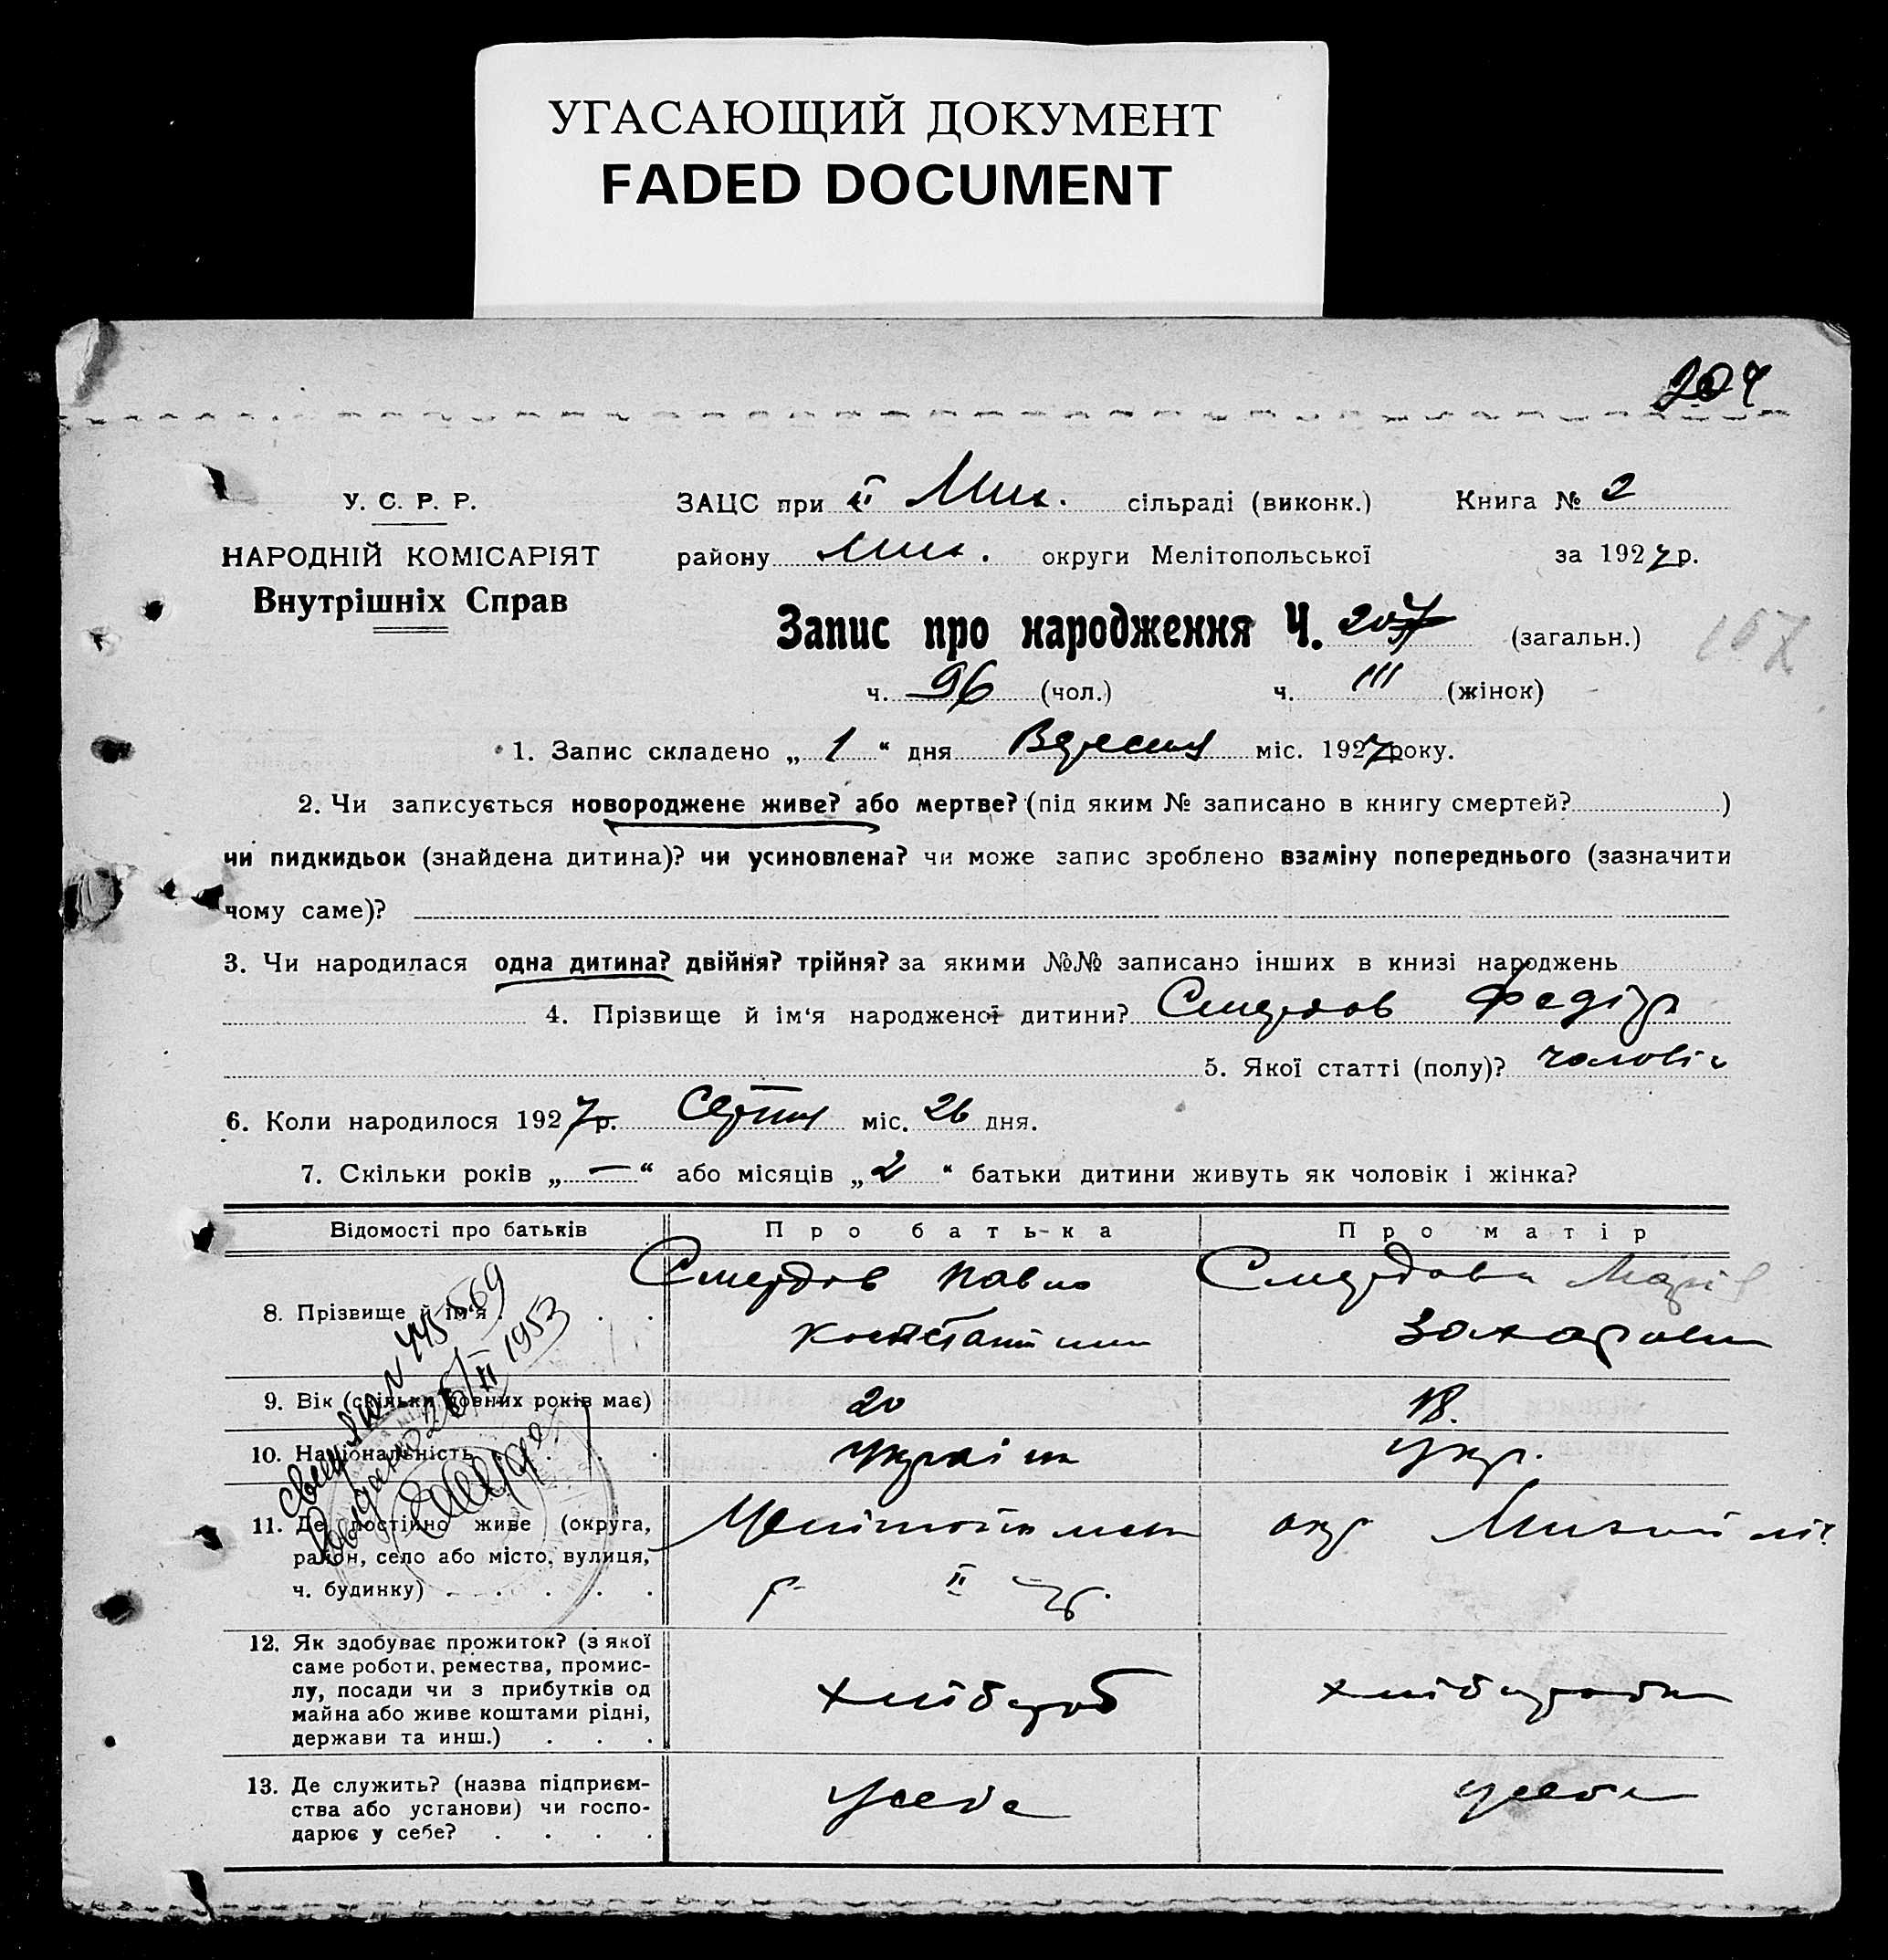 УГАСАЮЩИЙ ДОКУМЕНТ
FADED DOCUMENT
204
У. С. Р. Р.
НАРОДНІЙ КОМІСАРІЯТ
Внутрішніх Справ
ЗАЦС при ІІ Мих. сільраді (виконк.) Книга № 2
району Мих. округи Мелітопольської за 1927 р.
Запис про народження Ч. 207 (загальн.)
ч. 96 (чол.) ч. 111 (жінок)
1. Запис складено „ 1 “ дня Вересня міс. 1927 року.
2. Чи записується новороджене живе? або мертве? (під яким № записано в книгу смертей? )
чи пидкидьок (знайдена дитина)? чи усиновлена? чи може запис зроблено взаміну попереднього (зазначити
чому саме)?
3. Чи народилася одна дитина? двійня? трійня? за якими №№ записано інших в книзі народжень
4. Прізвище й ім‘я народженої дитини? Смердов Федір
5. Якої статті (полу)? чоловіч
6. Коли народилося 1927 р. Серпня міс. 26 дня.
7. Скільки років „ — “ або місяців „ 2 “ батьки дитини живуть як чоловік і жінка?
Відомості про батьків Про батька Про матір
8. Прізвище й ім‘я . . . Смердов Павло Смердова Марія
Костянтин Захаровн
9. Вік (скільки повних років має) 20 18.
10. Національність . . . . україн укр.
11. Де постійно живе (округа, Мелітопольск окр Михайлів
район, село або місто, вулиця,
ч. будинку) . . . . . р. ІІ
12. Як здобуває прожиток? (з якої
саме роботи, ремества, промис-
лу, посади чи з прибутків од хлібороб хліборобка
майна або живе коштами рідні,
держави та инш.) . . .
13. Де служить? (назва підприєм-
ства або установи) чи госпо- у себе у себе
дарює у себе? . . . .
445569
26/II 1953